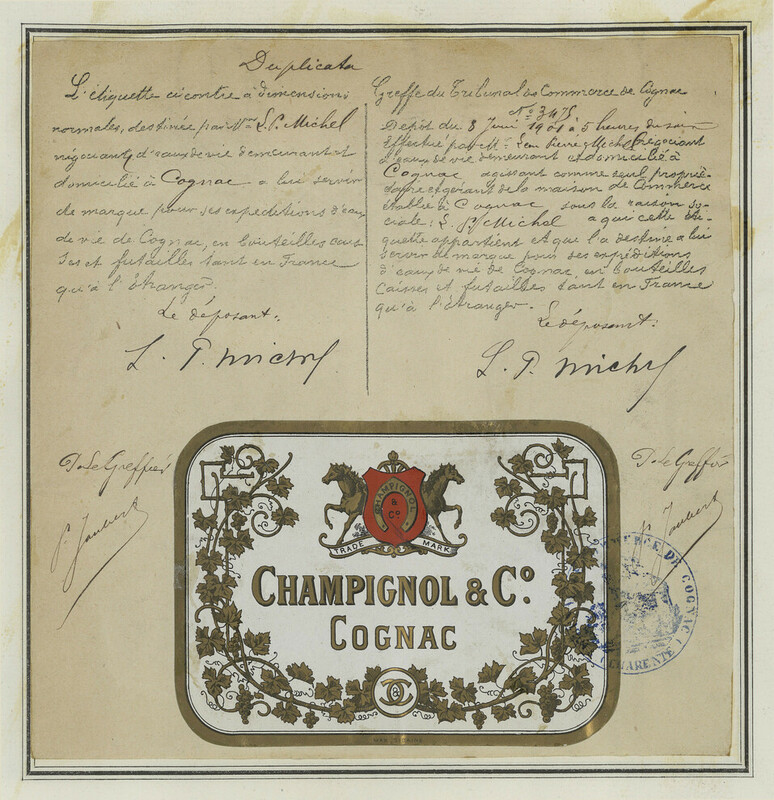 Duplicata
L'étiquette ci contre a dimensions
normales, destinée par Mr L. P. Michel
négociant, d'eaux de vie demeurant et
domicilié à Cognac a lui servir
de marque pour ses expéditions d'eaux
de vie de Cognac, en bouteilles cais
ses et futailles tant en France
qu'à l'étranger.
Le déposant:
L. P. Michel
P. Le Greffier
Greffe du Tribunal de Commerce de Cognac
No 3475
Dépôt du 8 Juin 1901 à 5 heures du soir
Effectué par Mr Léon Pierre Michel négociant
d'eaux de vie demeurant et domicilié à
Cognac agissant comme seul proprié-
taire et gérant de la maison de Commerce
établie à Cognac sous la raison so-
ciale: L. P. Michel a qui cette éti-
quette appartient et que l'a destine a lui
servir de marque pour ses expéditions
d'eaux de vie de Cognac, en bouteilles
Caisses et futailles tant en France
qu'à l'étranger.
Le déposant:
L. P. Michel
P. Le Greffier
CHAMPIGNOL
& Co
TRADE MARK
CHAMPIGNOL & Co.
COGNAC
C&C
COMMERCE DE COGNAC
CHARENTE